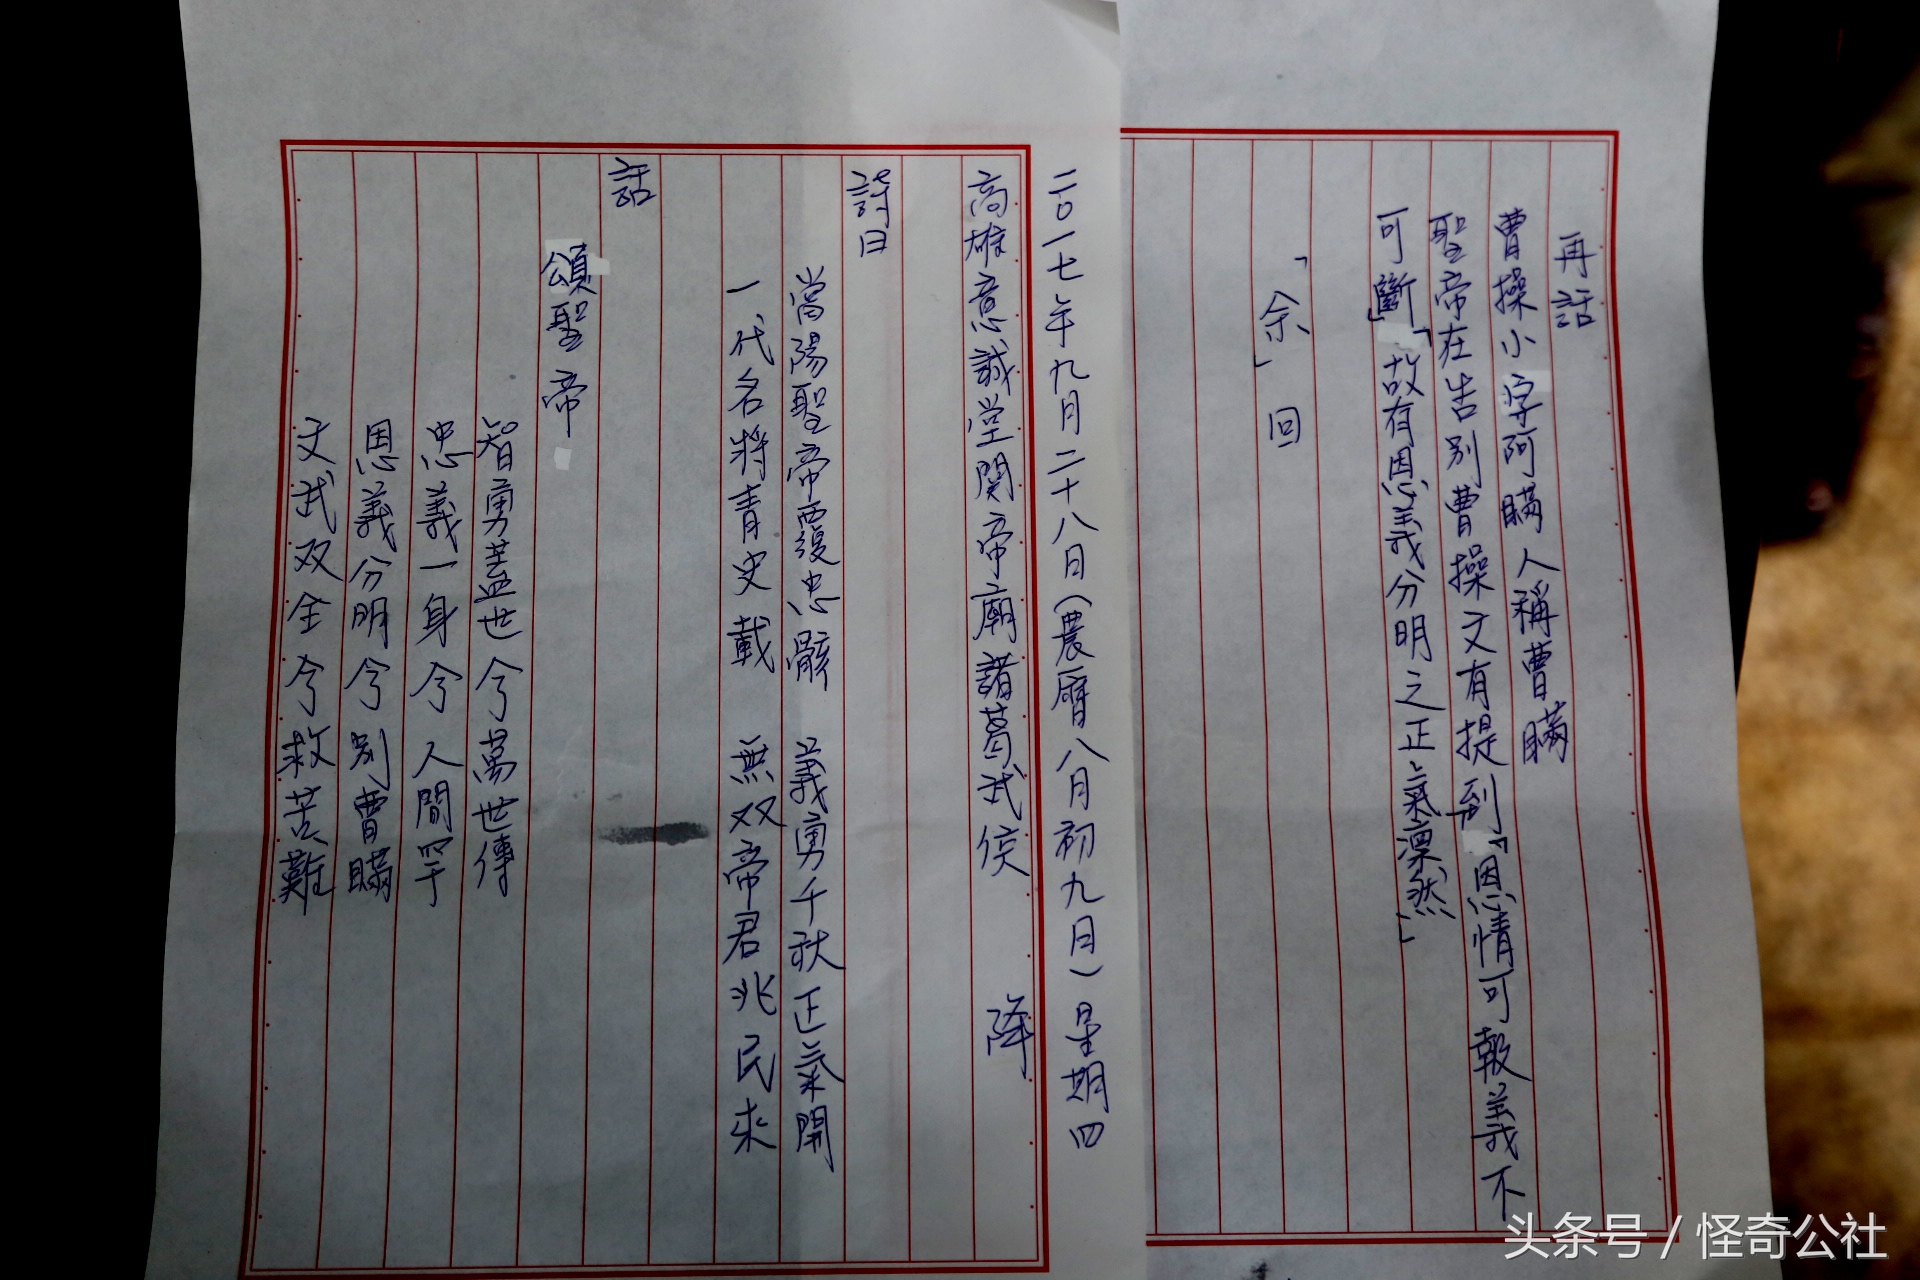 二〇一七年九月二十八日(農曆八月初九日)星期四
高雄意誠堂関帝廟諸葛武侯　降
詩曰
當陽聖帝覆忠骸　義勇千秋正氣開
一代名將青史載　無双帝君兆民來
話
頌聖帝
智勇蓋世兮萬世傳
忠義一身兮人間罕
恩義分明兮別曹瞞
文武双全兮救苦難
再話
曹操小字阿瞞人稱曹瞞
聖帝在告別曹操文有提到「恩情可報義不
可斷」「故有恩義分明之正氣凛然」
「余」回
头条号 / 怪奇公社